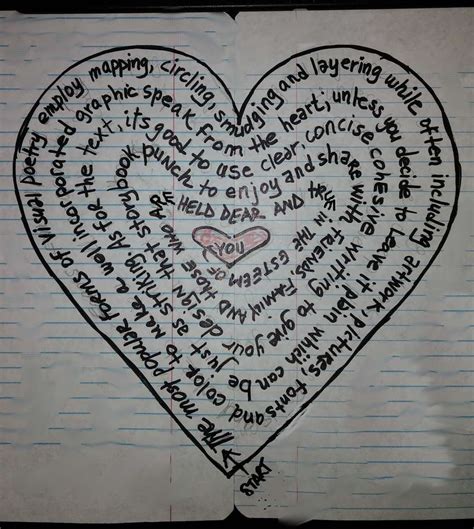 START
The most popular forms of visual poetry employ mapping, circling, smudging and layering while often including artwork, pictures, fonts and
color to make a well incorporated graphic speak from the heart; unless you decide to leave it plain which can be
just as striking As for the text, its good to use clear, concise cohesive writing to give your
design that storybook punch to enjoy and share with FRIENDS, FAMILY AND
THOSE WHO ARE HELD DEAR AND TRULY IN THE ESTEEM OF
YOU